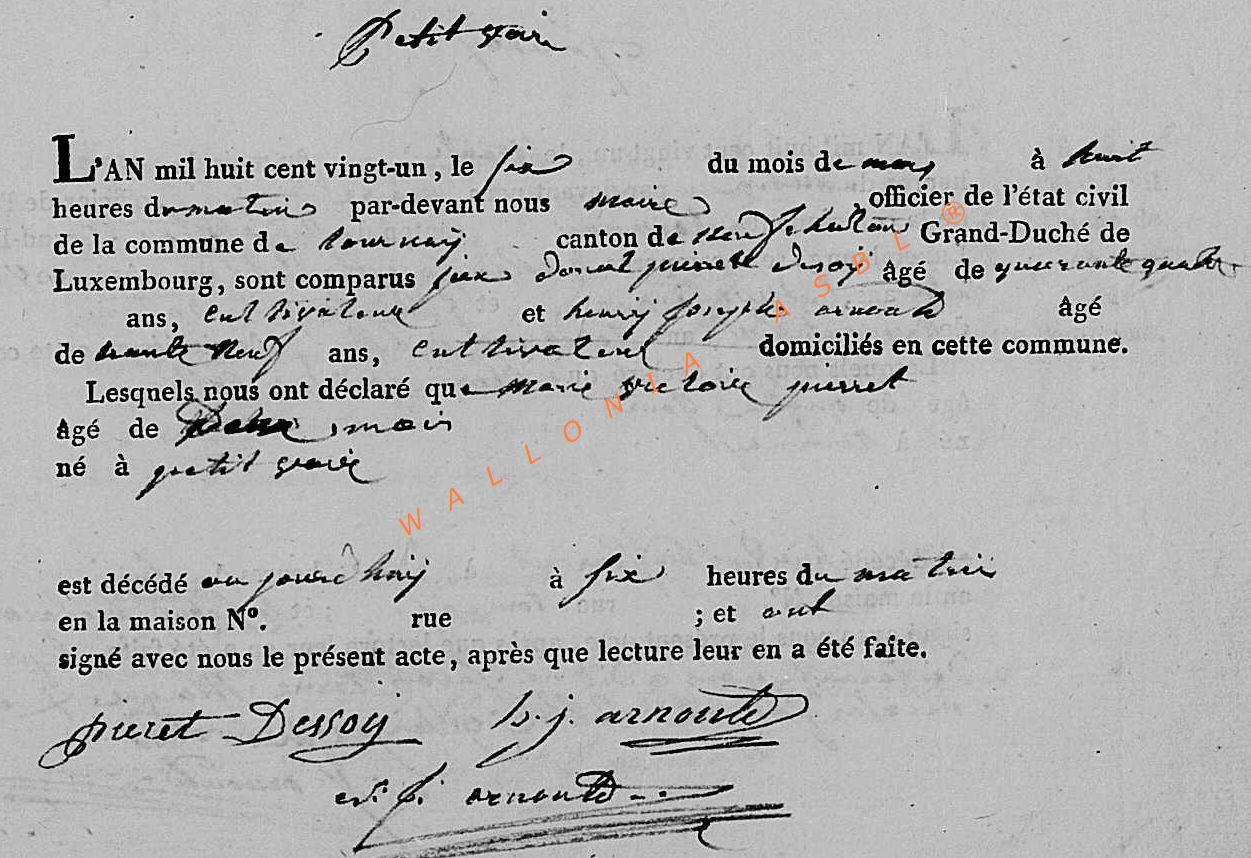 Petit voir
L'AN mil huit cent vingt-un, le six du mois de mars à huit
heures du matin par-devant nous maire officier de l'état civil
de la commune de tournay canton de neufchateau Grand-Duché de
Luxembourg, sont comparus pierret dessoy âgé de quarante quatre
ans, cultivateur et henry joseph arnould âgé
de trente neuf ans, cultivateur domiciliés en cette commune.
Lesquels nous ont déclaré que marie victoire pierret
âgé de Deux mois
né à petit voir
est décédé au jourdhuy à six heures du matin
en la maison N°. rue ; et ont
signé avec nous le présent acte, après que lecture leur en a été faite.
pierret Dessoy h. j. arnould
arnould
WALLONIA ASBL ®